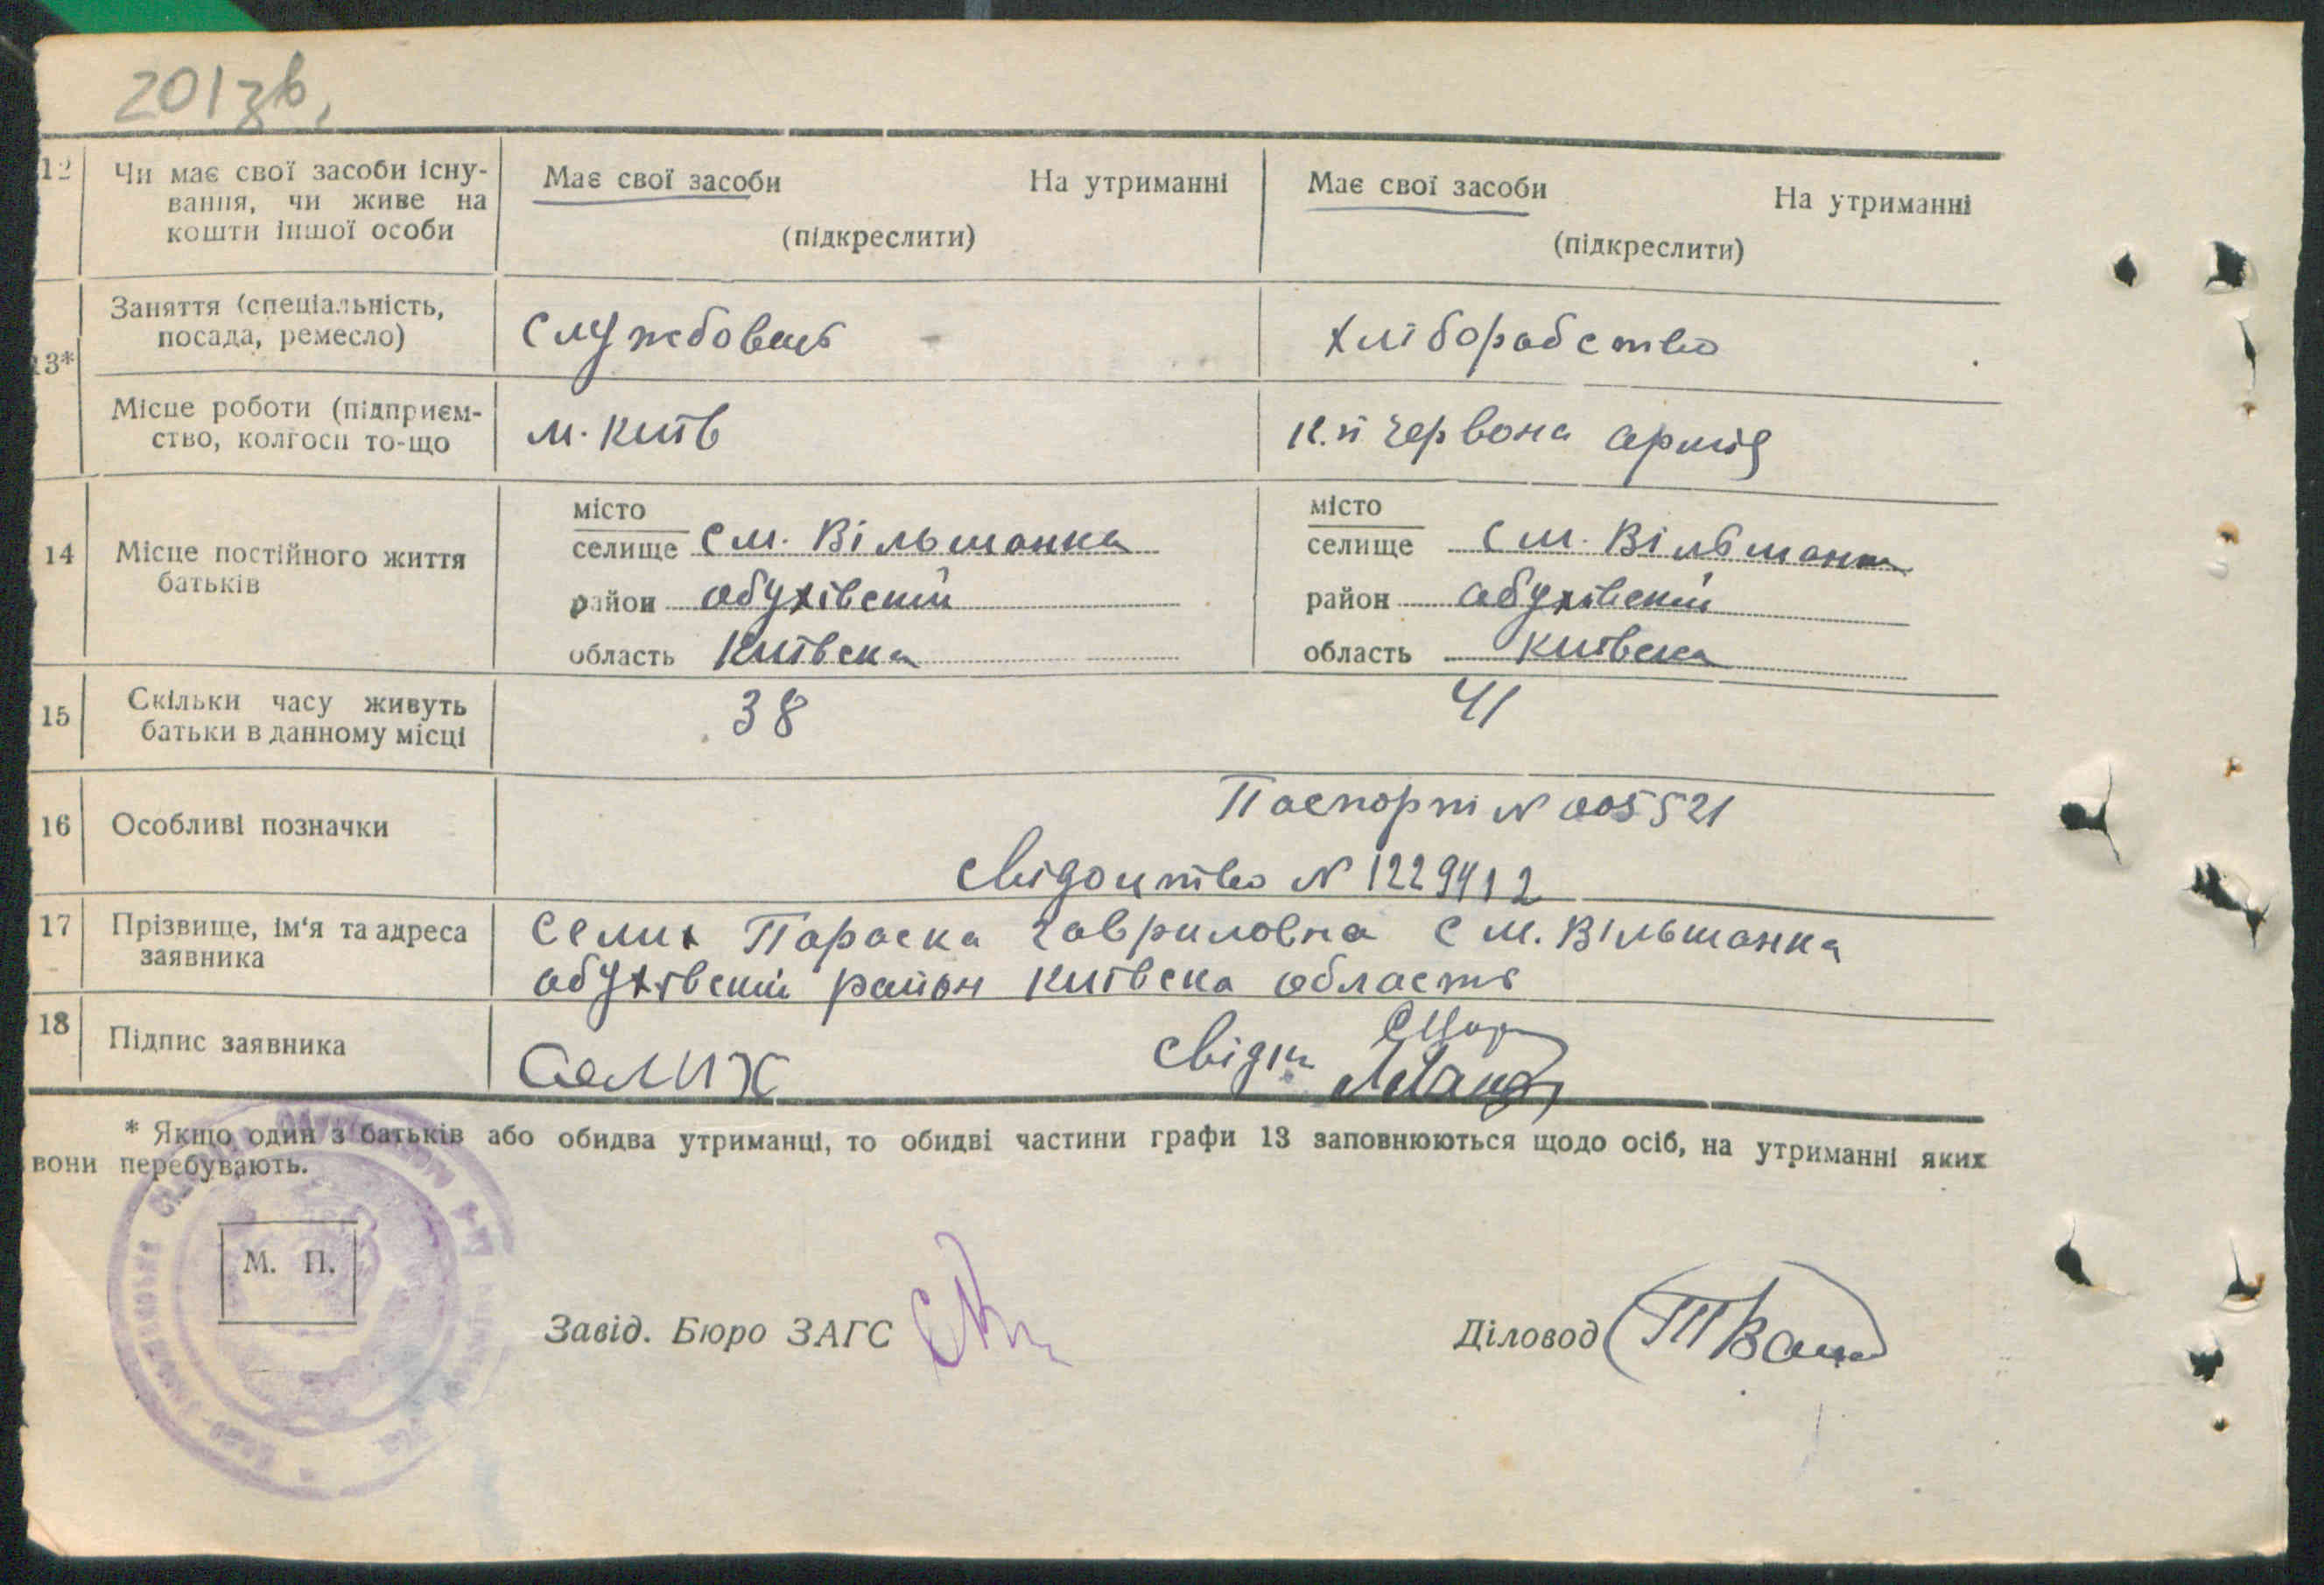 201зв.
12 Чи має свої засоби існу-
вання, чи живе на
кошти іншої особи
Має свої засоби На утриманні
(підкреслити)
Має свої засоби На утриманні
(підкреслити)
13*
Заняття (спеціальність,
посада, ремесло)
Службовець
хліборобство
Місце роботи (підприєм-
ство, колгосп то-що
м. Київ
к.п Червона армія
14 Місце постійного життя
батьків
місто
селище см. Вільшанка
район обухівский
область Київска
місто
селище см. Вільшанка
район обухівский
область Київска
15 Скільки часу живуть
батьки в данному місці
38
41
16 Особливі позначки
Паспорт N 005521
свідоцтво N 1229412
17 Прізвище, ім'я та адреса
заявника
Селих Параска Гавриловна см. Вільшанка
обухівский район Київска область
18 Підпис заявника
Селих
свідки
* Якщо один з батьків або обидва утриманці, то обидві частини графи 13 заповнюються щодо осіб, на утриманні яких
вони перебувають.
М. П.
Завід. Бюро ЗАГС
Діловод